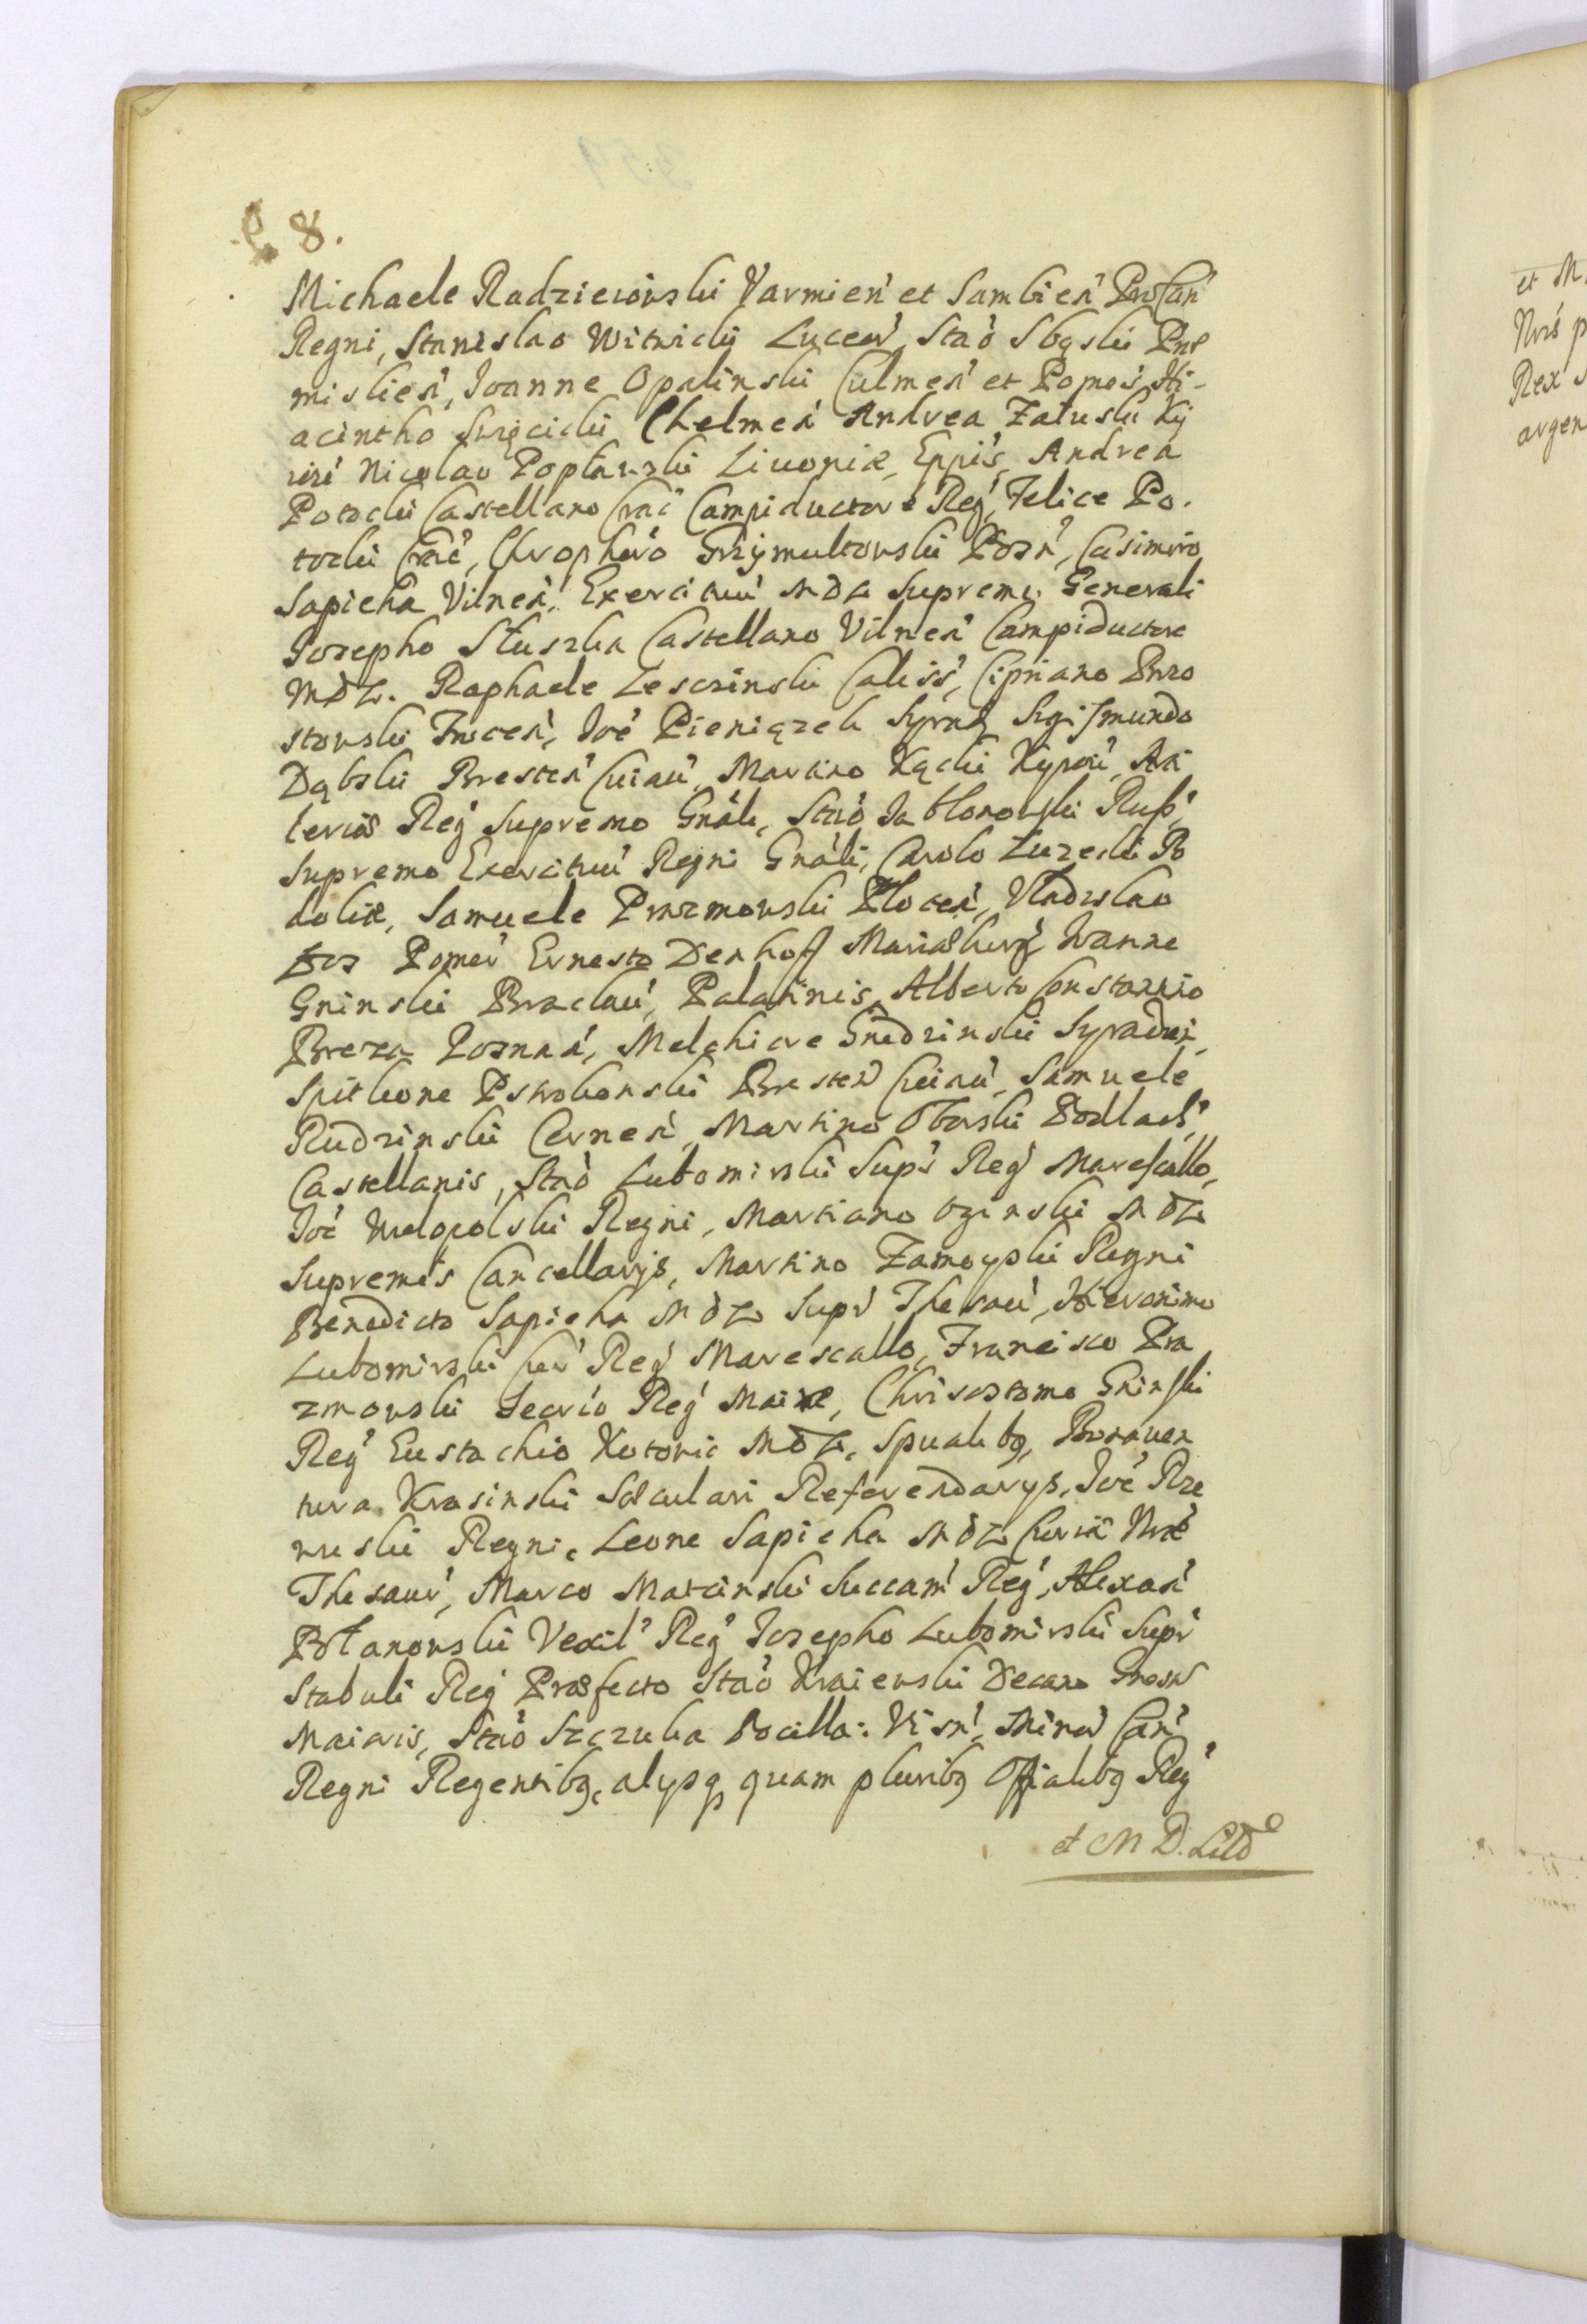 8.
Michaele Radzieiowski Varmien et Sambien ProCan
Regni, Stanislao Witwicki Luceor, Stao Sbąski Pre
mislien, Ioanne Opalinski Culmen et Pomes, Hi-
acintho Swięcicki Chelmen Andrea Załuski Kij
Nicolao Popławski Livoniæ, Eppis, Andrea
Potocki Castellano Crac Campiductore Reg, Felice Po.
tocki Crac, Chrophoro Grzymultowski Posn, Casimiro
Sapieha Vilnen, Exercituu MDL Supremo Generali
Iosepho Słuszka Castellano Vilnen Campiductore
MDL. Raphaele Lesczinski Caliss, Cipriano Brzo
stowski Trocen, Ioe Pieniązek Syrad, Sigismundo
Dąbski Bresten Cuiau, Martino Kącki Kyou, Ar
leriæ Reg Supremo Gnali, Stao Jabłonowski Russ,
Supremo Exercituu Regni Gnali, Carolo Luzecki Po
doliæ, Samuele Prazmowski Plocen, Vladislao
Łos Pomer Ernesto Denhoff Mariæburg Ioanne
Gninski Braclau, Palatinis, Alberto Constantino
Breza Posnan, Melchiore Grudzinski Syradien,
Spitkone Pstrokonski Bresten Cuiau, Samuele
Rudzinski Cernen, Martino Oborski Podlach,
Castellanis, Stao Lubomirski Supr Reg Marescallo,
Ioe Wielopolski Regni, Martiano Oginski MDL
Supremis Cancellarijs, Martino Zamoyski Regni
Benedicto Sapieha MDL Supr Thesau, Hieronimo
Lubomirski Cur Reg Marescallo, Francisco Pra
zmowski Secrio Reg Maire, Chrisostomo Gninski
Reg Eustachio Kotowic MDL, Spualibq, Bonauen
tura Krasinski Sæculari Referendarys, Ioe Rze
wuski Regni, Leone Sapieha MDL Curiæ Nræ
Thesaur, Marco Matcinski Succam Reg, Alexan
Potanowski Vexil Reg Iosepho Lubomirski Supr
Stabuli Reg Præfecto Stao Kraiewski Decano Gnesn
Maioris, Stao Szczuka Pocilla: Visn, Minor Can
Regni Regentibq, alysq quam pluribq Offialibq Reg
et M D. Litd
et M
Rex
argen